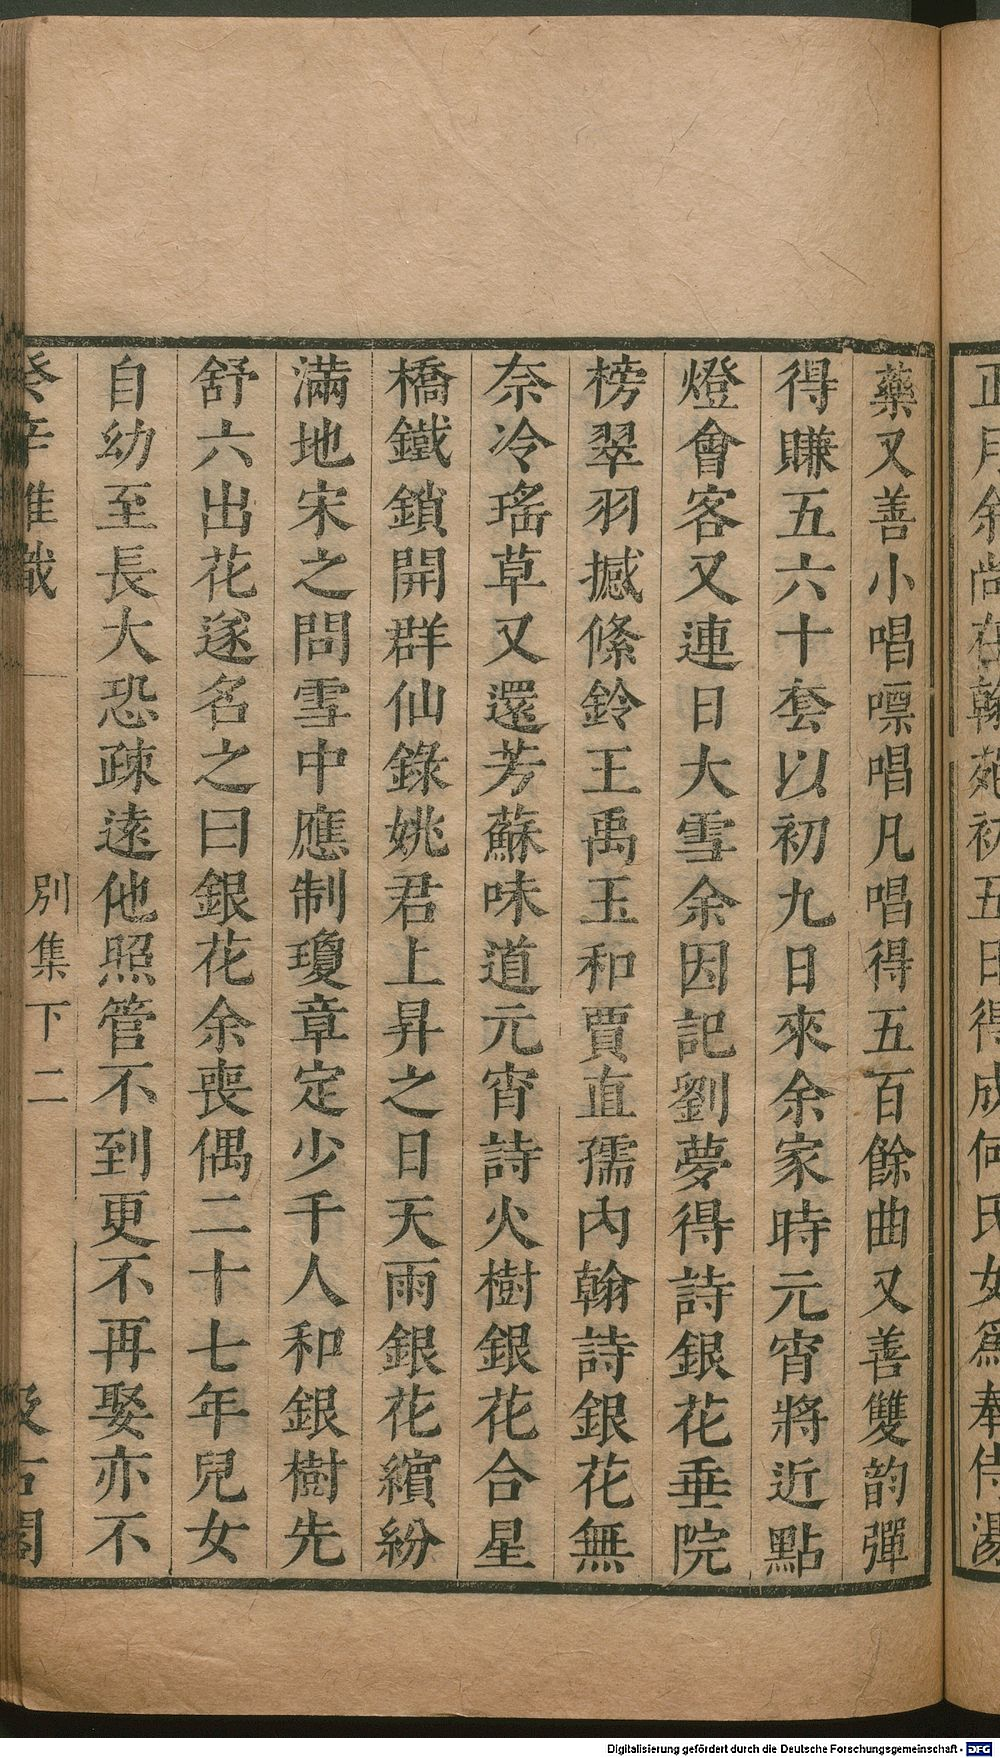 正月余尚在翰苑初五日得成何氏女為奉侍湯
藥又善小唱嘌唱凡唱得五百餘曲又善雙韵彈
得賺五六十套以初九日來余家時元宵將近點
燈會客又連日大雪余因記劉夢得詩銀花垂院
榜翠羽撼絛鈴王禹玉和賈直孺內翰詩銀花無
奈冷瑤草又還芳蘇味道元宵詩火樹銀花合星
橋鐵鎖開群仙錄姚君上昇之日天雨銀花繽紛
滿地宋之問雪中應制瓊章定少千人和銀樹先
舒六出花遂名之曰銀花余喪偶二十七年兒女
自幼至長大恐疎遠他照管不到更不再娶亦不
癸辛雜識 別集下 二 汲古閣
Digitalisierung gefördert durch die Deutsche Forschungsgemeinschaft - DFG